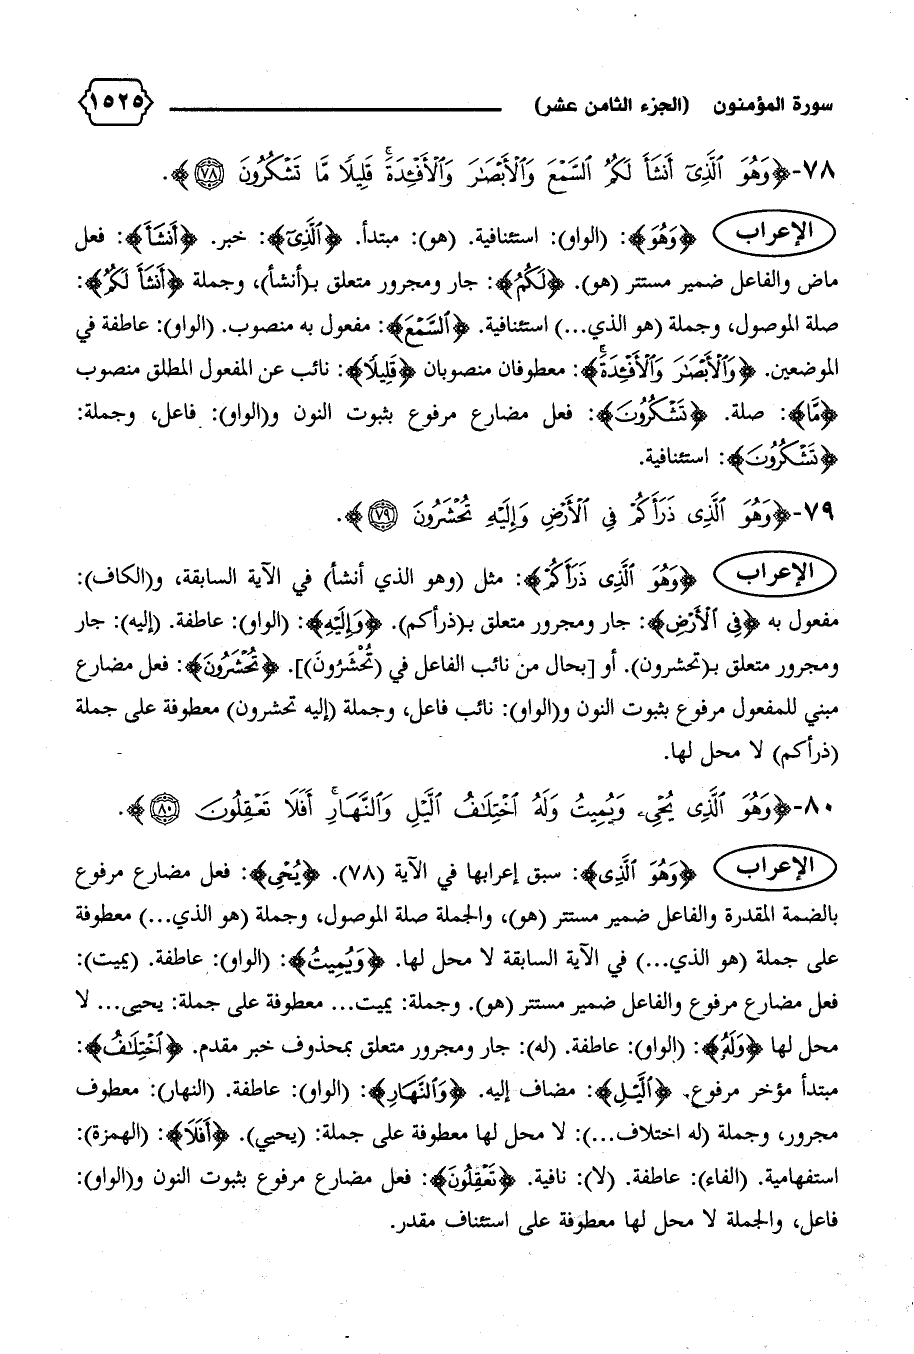 سورة المؤمنون (الجزء الثامن عشر) ١٥٢٥
٧٨-﴿وَهُوَ ٱلَّذِىٓ أَنشَأَ لَكُمُ ٱلسَّمْعَ وَٱلْأَبْصَٰرَ وَٱلْأَفْـِٔدَةَ ۚ قَلِيلًا مَّا تَشْكُرُونَ ٧٨﴾.
الإعراب ﴿وَهُوَ﴾: (الواو): استئنافية. (هو): مبتدأ. ﴿ٱلَّذِىٓ﴾: خبر. ﴿أَنشَأَ﴾: فعل
ماض والفاعل ضمير مستتر (هو). ﴿لَكُمُ﴾: جار ومجرور متعلق بـ(أنشأ)، وجملة ﴿أَنشَأَ لَكُمُ﴾:
صلة الموصول، وجملة (هو الذي...) استئنافية. ﴿ٱلسَّمْعَ﴾: مفعول به منصوب. (الواو): عاطفة في
الموضعين. ﴿وَٱلْأَبْصَٰرَ وَٱلْأَفْـِٔدَةَ ۚ﴾: معطوفان منصوبان ﴿قَلِيلًا﴾: نائب عن المفعول المطلق منصوب
﴿مَّا﴾: صلة. ﴿تَشْكُرُونَ﴾: فعل مضارع مرفوع بثبوت النون و(الواو): فاعل، وجملة:
﴿تَشْكُرُونَ﴾: استئنافية.
٧٩-﴿وَهُوَ ٱلَّذِى ذَرَأَكُمْ فِى ٱلْأَرْضِ وَإِلَيْهِ تُحْشَرُونَ ٧٩﴾.
الإعراب ﴿وَهُوَ ٱلَّذِى ذَرَأَكُمْ﴾: مثل (وهو الذي أنشأ) في الآية السابقة، و(الكاف):
مفعول به ﴿فِى ٱلْأَرْضِ﴾: جار ومجرور متعلق بـ(ذرأكم). ﴿وَإِلَيْهِ﴾: (الواو): عاطفة. (إليه): جار
ومجرور متعلق بـ(تحشرون). أو [بحال من نائب الفاعل في (تُحْشَرُونَ)]. ﴿تُحْشَرُونَ﴾: فعل مضارع
مبني للمفعول مرفوع بثبوت النون و(الواو): نائب فاعل، وجملة (إليه تحشرون) معطوفة على جملة
(ذرأكم) لا محل لها.
٨٠-﴿وَهُوَ ٱلَّذِى يُحْىِۦ وَيُمِيتُ وَلَهُ ٱخْتِلَٰفُ ٱلَّيْلِ وَٱلنَّهَارِ ۚ أَفَلَا تَعْقِلُونَ ٨٠﴾.
الإعراب ﴿وَهُوَ ٱلَّذِى﴾: سبق إعرابها في الآية (٧٨). ﴿يُحْىِ﴾: فعل مضارع مرفوع
بالضمة المقدرة والفاعل ضمير مستتر (هو)، والجملة صلة الموصول، وجملة (هو الذي...) معطوفة
على جملة (هو الذي...) في الآية السابقة لا محل لها. ﴿وَيُمِيتُ﴾: (الواو): عاطفة. (يميت):
فعل مضارع مرفوع والفاعل ضمير مستتر (هو). وجملة: يميت... معطوفة على جملة: يحيى... لا
محل لها ﴿وَلَهُ﴾: (الواو): عاطفة. (له): جار ومجرور متعلق بمحذوف خبر مقدم. ﴿ٱخْتِلَٰفُ﴾:
مبتدأ مؤخر مرفوع. ﴿ٱلَّيْلِ﴾: مضاف إليه. ﴿وَٱلنَّهَارِ﴾: (الواو): عاطفة. (النهار): معطوف
مجرور، وجملة (له اختلاف...): لا محل لها معطوفة على جملة: (يحيي). ﴿أَفَلَا﴾: (الهمزة):
استفهامية. (الفاء): عاطفة. (لا): نافية. ﴿تَعْقِلُونَ﴾: فعل مضارع مرفوع بثبوت النون و(الواو):
فاعل، والجملة لا محل لها معطوفة على استئناف مقدر.